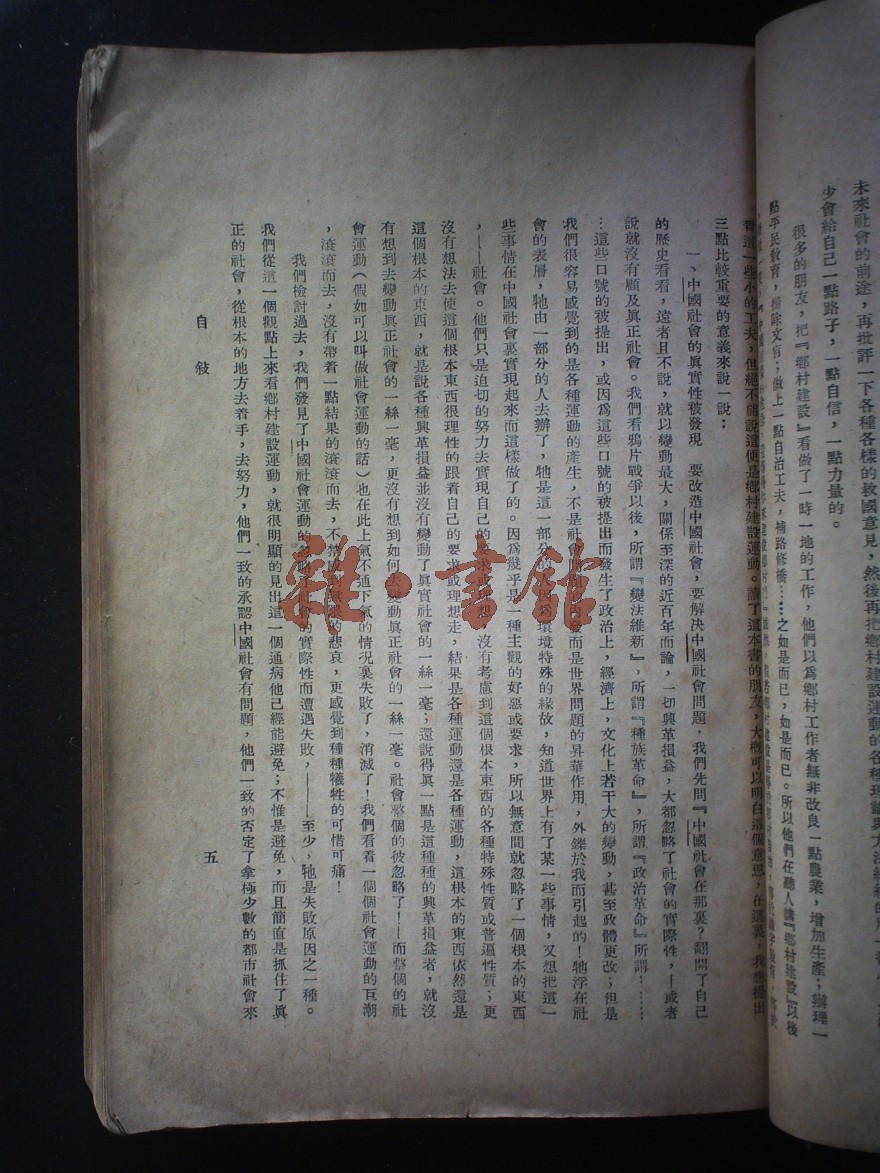 未來社會的前途，再批評一下各種各樣的救國意見，然後再把鄉村建設運動的各種理論與大法
少會給自己一點路子，一點自信，一點力量的。
很多的朋友，把『鄉村建設』看做了一時一地的工作，他們以爲鄉村工作者無非改良一點農業，增加生產；辦理一
點平民教育，掃除文盲；做上一點自治工夫，補路修橋……之如是而已，如是而已。所以他們在聽人講『鄉村建設』以後
看這一些小的工夫，但絕不能說這便是鄉村建設運動。讀了這本書的朋友，大概可以明白這個意思，在這裏，我想提出
三點比較重要的意義來說一說：
一、中國社會的眞實性被發現　要改造中國社會，要解決中國社會問題，我們先問『中國社會在那裏？翻開了自己
的歷史看看，遠者且不說，就以變動最大，關係至深的近百年而論，一切興革損益，大都忽略了社會的實際性，—或者
說就沒有顧及眞正社會。我們看鴉片戰爭以後，所謂『變法維新』，所謂『種族革命』，所謂『政治革命』所謂………
…這些口號的被提出，或因爲這些口號的被提出而發生了政治上，經濟上，文化上若干大的變動，甚至政體更改；但是
我們很容易感覺到的是各種運動的產生，不是社會問題的內發而是世界問題的昇華作用，外鑠於我而引起的！牠浮在社
會的表層，牠由一部分的人去辦了，牠是這一部分的人因爲環境特殊的緣故，知道世界上有了某一些事情，又想把這一
些事情在中國社會裏實現起來而這樣做了的。因爲幾乎是一種主觀的好惡或要求，所以無意間就忽略了一個根本的東西
，——社會。他們只是迫切的努力去實現自己的要求或理想，沒有考慮到這個根本東西的各種特殊性質或普遍性質；更
沒有想法去使這個根本東西很理性的跟着自己的要求或理想走，結果是各種運動還是各種運動，這根本的東西依然還是
這個根本的東西，就是說各種興革損益並沒有變動了眞實社會的一絲一毫；還說得眞一點是這種種的興革損益者，就沒
有想到去變動眞正社會的一絲一毫，更沒有想到如何去變動眞正社會的一絲一毫。社會整個的彼忽略了！—而整個的社
會運動（假如可以叫做社會運動的話）也在此上氣不通下氣的情況裏失敗了，消滅了！我們看着一個個社會運動的巨潮
，滾滾而去，沒有帶着一點結果的滾滾而去，不禁感到無限的悲哀，更感覺到種種犧牲的可惜可痛！
我們檢討過去，我們發見了中國社會運動的忽略了社會的實際性而遭遇失敗，——至少，牠是失敗原因之一種。
我們從這一個觀點上來看鄉村建設運動，就很明顯的見出這一個通病他已經能避免；不惟是避免，而且簡直是抓住了眞
正的社會，從根本的地方去着手，去努力，他們一致的承認中國社會有問題，他們一致的否定了拿極少數的都市社會來
自敍
五
雜·書館